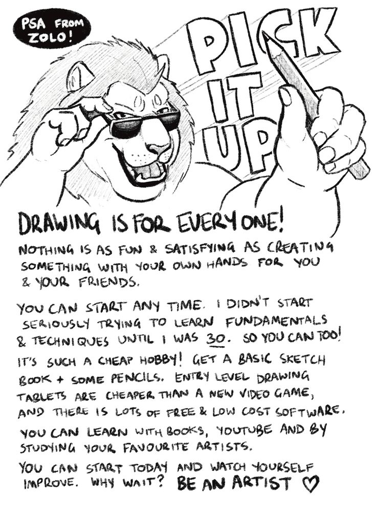 PSA FROM
ZOLO!
PICK
IT
UP
DRAWING IS FOR EVERYONE!
NOTHING IS AS FUN & SATISFYING AS CREATING
SOMETHING WITH YOUR OWN HANDS FOR YOU
& YOUR FRIENDS.
YOU CAN START ANY TIME. I DIDN'T START
SERIOUSLY TRYING TO LEARN FUNDAMENTALS
& TECHNIQUES UNTIL I WAS 30. SO YOU CAN TOO!
IT'S SUCH A CHEAP HOBBY! GET A BASIC SKETCH
BOOK + SOME PENCILS. ENTRY LEVEL DRAWING
TABLETS ARE CHEAPER THAN A NEW VIDEO GAME,
AND THERE IS LOTS OF FREE & LOW COST SOFTWARE.
YOU CAN LEARN WITH BOOKS, YOUTUBE AND BY
STUDYING YOUR FAVOURITE ARTISTS.
YOU CAN START TODAY AND WATCH YOURSELF
IMPROVE. WHY WAIT? BE AN ARTIST ♡